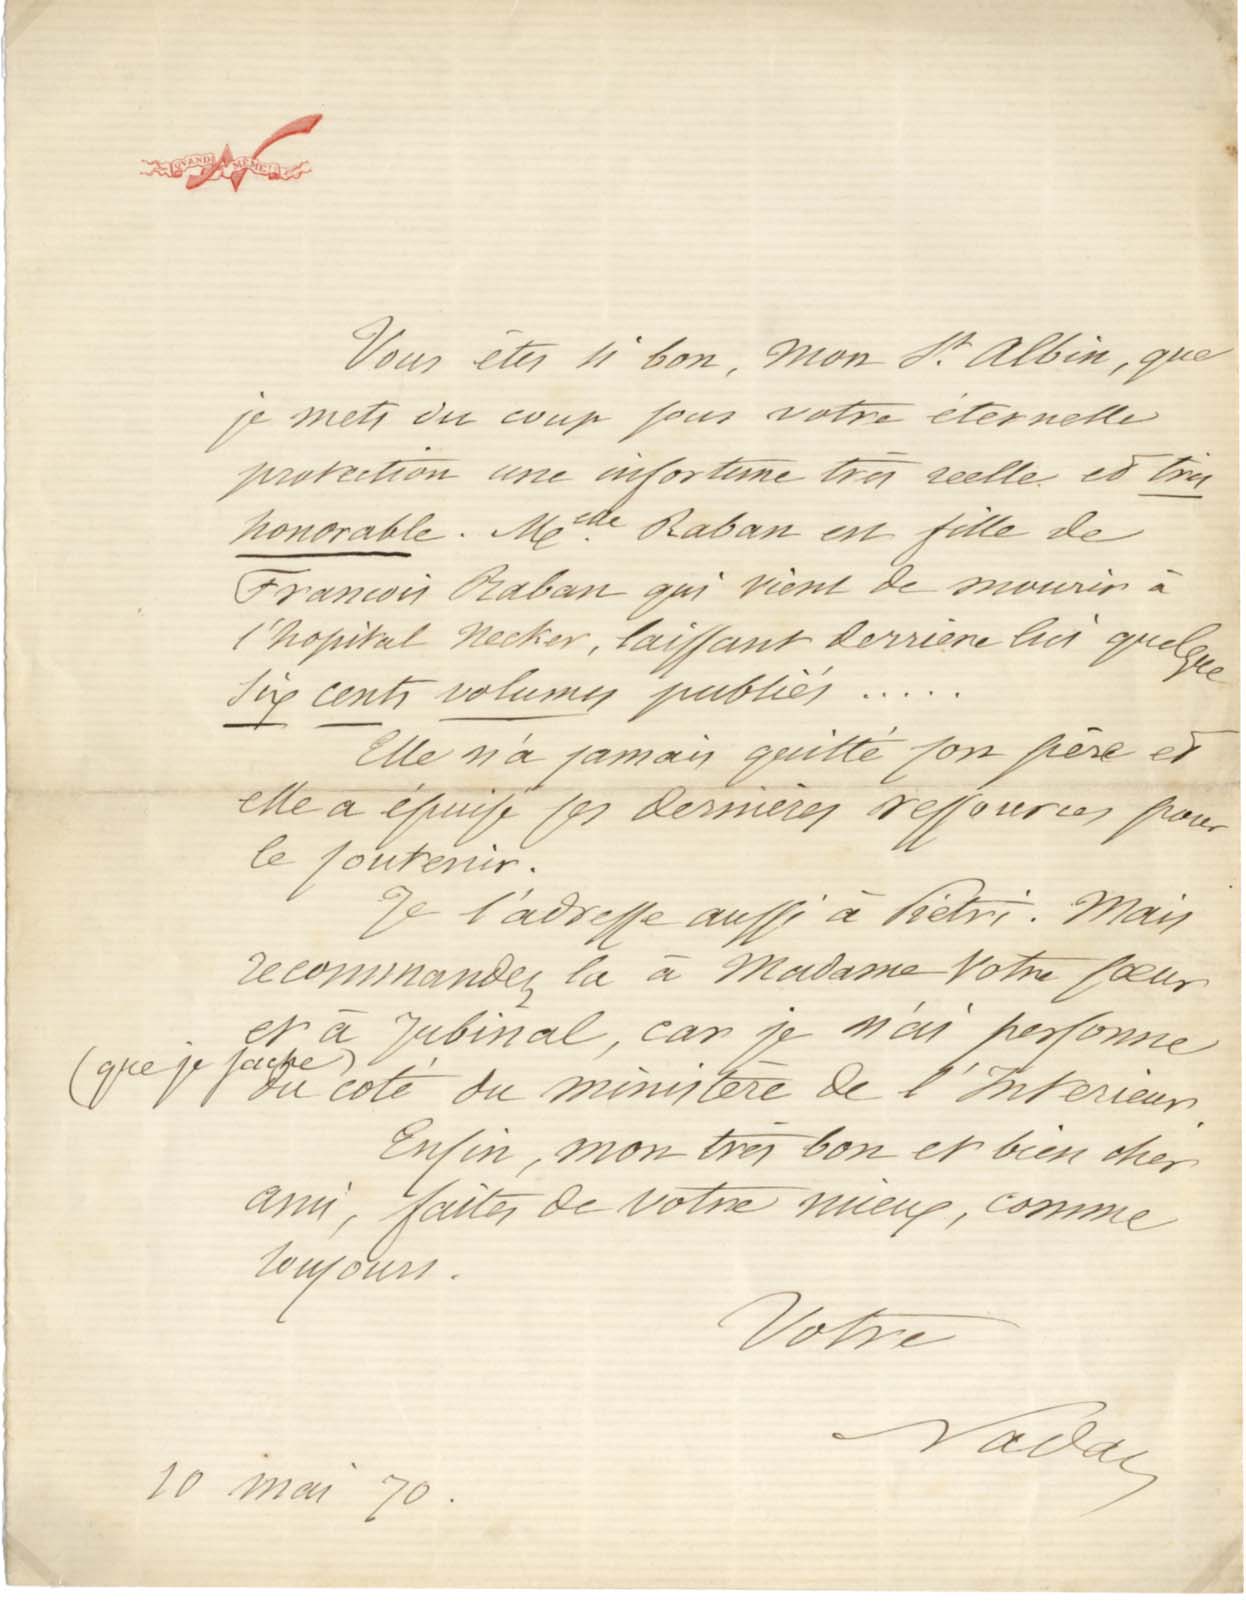 QUAND MÊME!
Vous êtes si bon, mon St. Albin, que
je mets du coup sous votre éternelle
protection une infortune très réelle et très
honorable. Melle. Raban est fille de
François Raban qui vient de mourir à
l'hopital Necker, laissant derrière lui quelque
six cents volumes publiés .....
Elle n'a jamais quitté son père et
elle a épuisé ses dernières ressources pour
le soutenir.
Je l'adresse aussi à Piétri. Mais
recommandez la à Madame votre sœur
et à Jubinal, car je n'ai personne
(que je sache)
du coté du ministère de l'Intérieur
Enfin, mon très bon et bien cher
ami, faites de votre mieux, comme
toujours.
Votre
Nadar
10 mai 70.